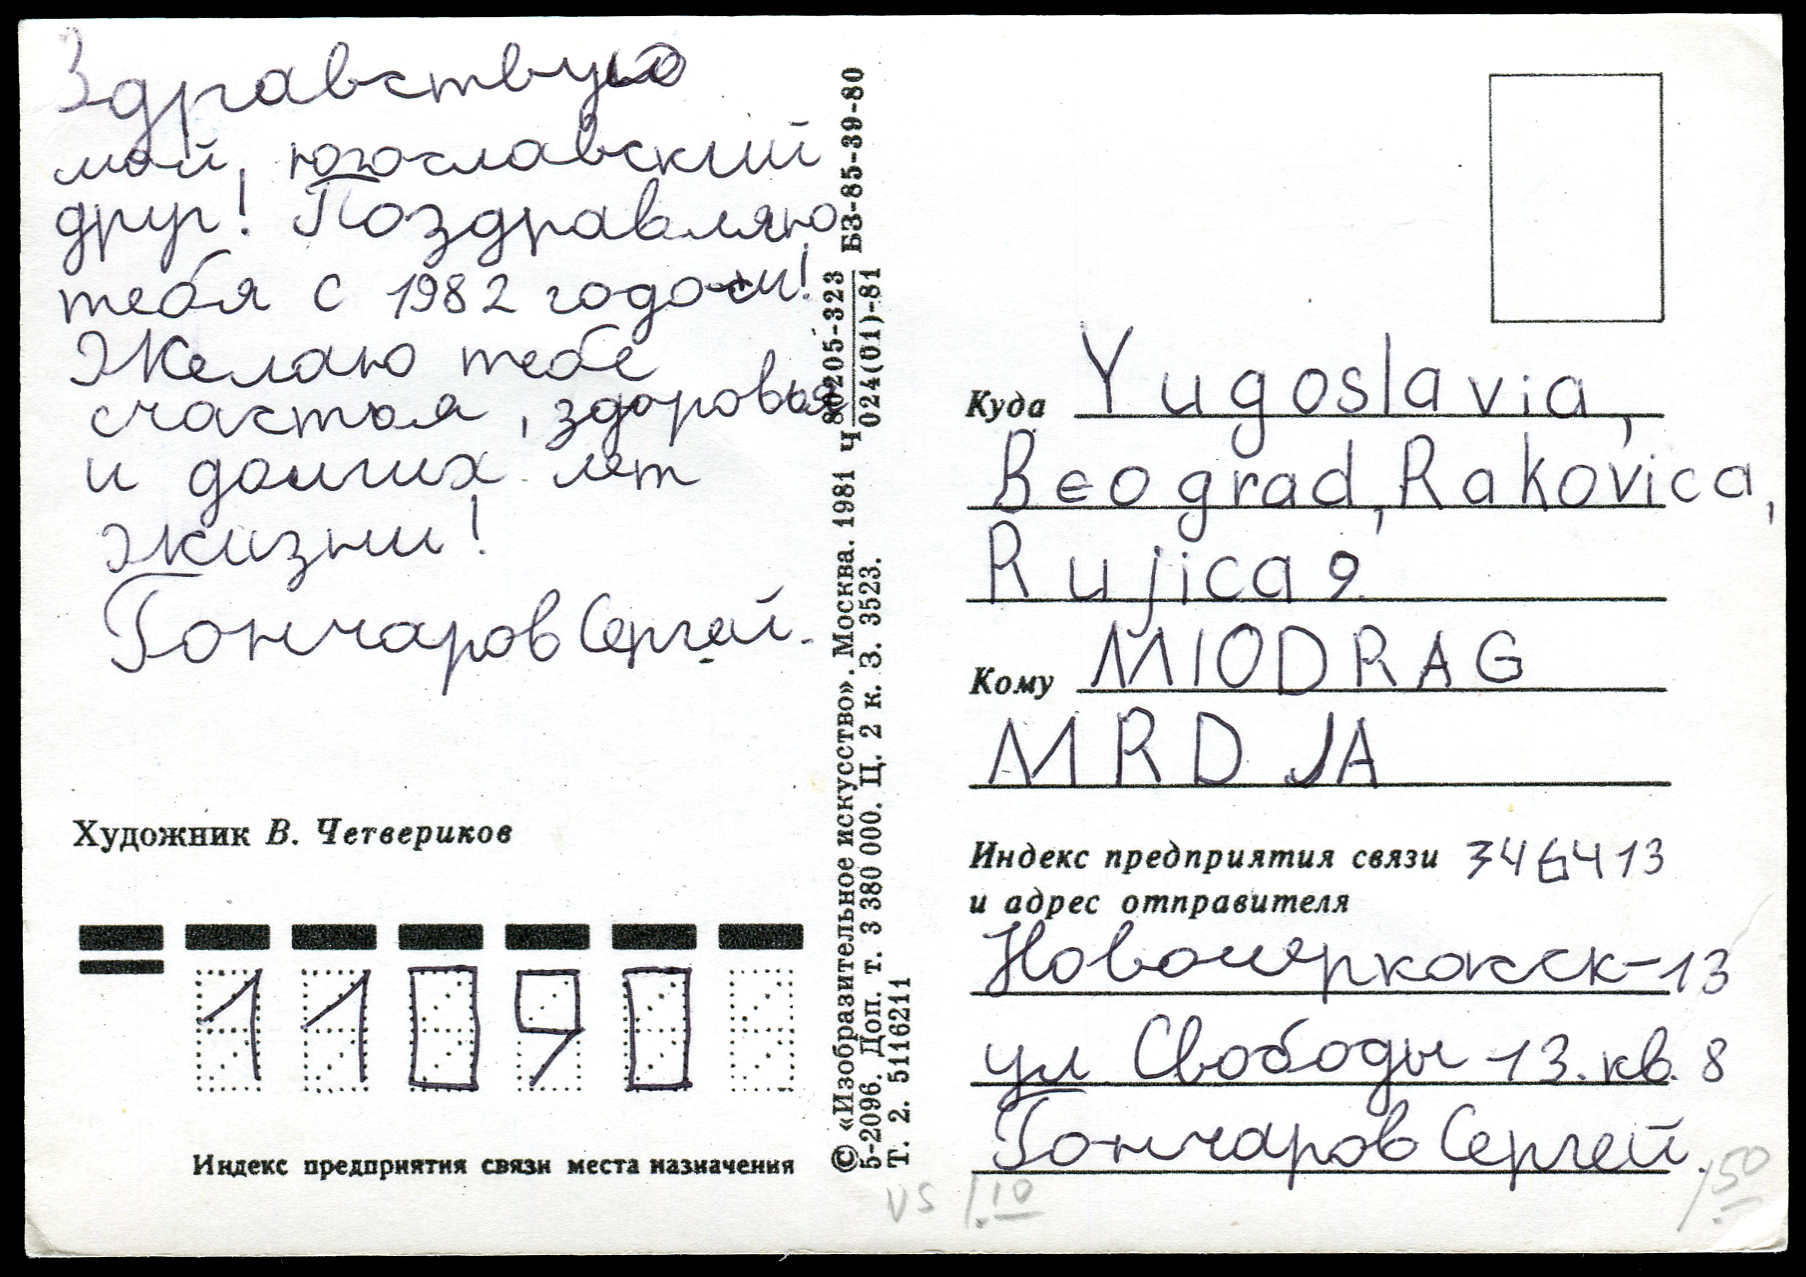 Здравствую
мой, югославский
друг! Поздравляю
тебя с 1982 годом!
Желаю тебе
счастья, здоровья
и долгих лет
жизни!
Гончаров Сергей.
Художник В. Четвериков
11090
Индекс предприятия связи места назначения
© «Изобразительное искусство». Москва. 1981 Ч 80205-323 / 024(01)-81 БЗ-85-39-80
5-2096. Доп. т. 3 380 000. Ц. 2 к. З. 3523.
Т. 2. 5116211
Куда Yugoslavia,
Beograd, Rakovica,
Rujica 9.
Кому MIODRAG
MRDJA
Индекс предприятия связи 346413
и адрес отправителя
Новочеркасск-13
ул Свободы 13. кв. 8
Гончаров Сергей.
VS 1.10
150